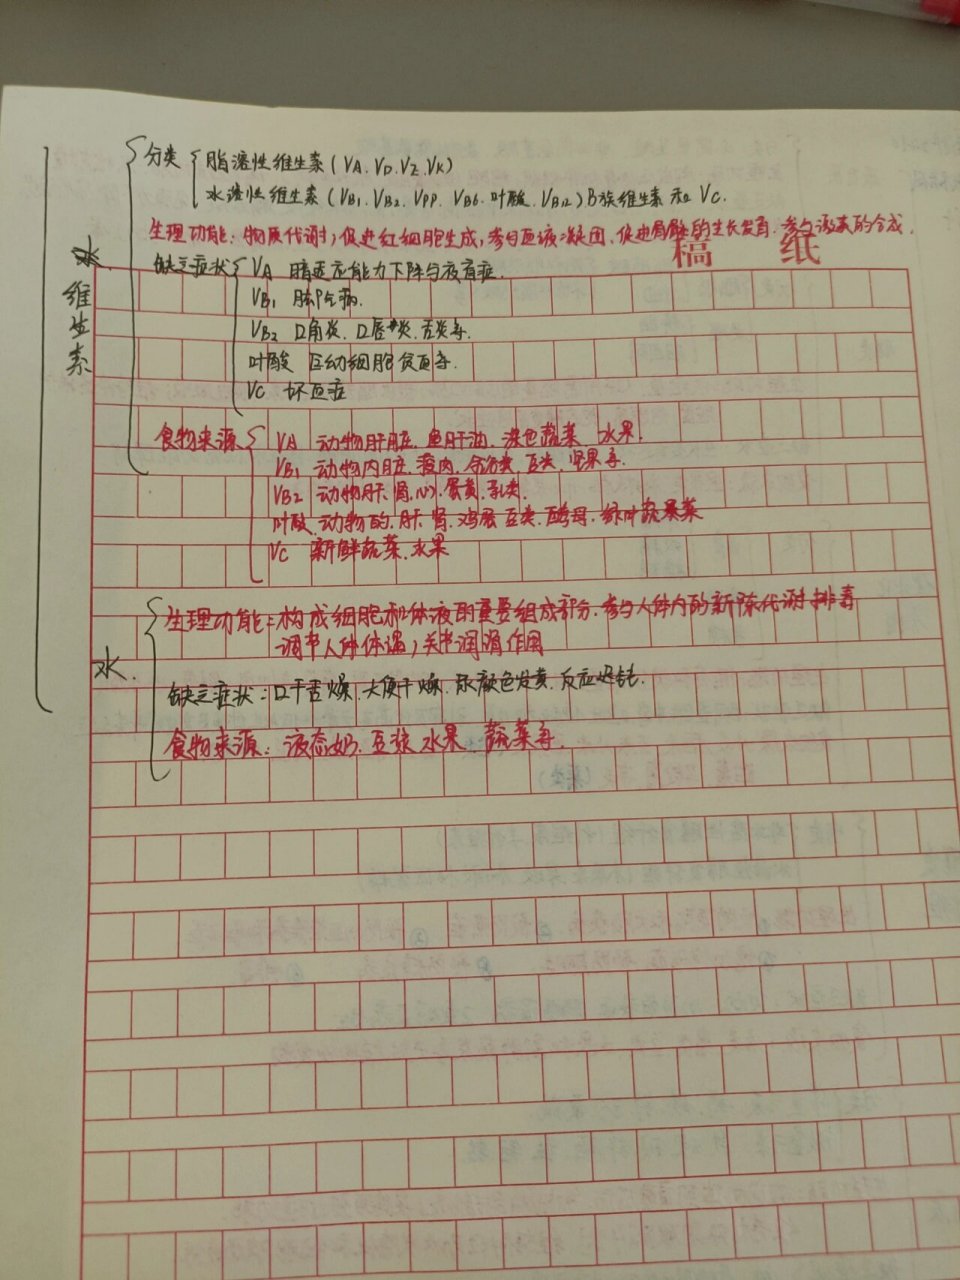 分类
脂溶性维生素(VA.VD.VZ.VK)
水溶性维生素(VB1.VB2.VPP.VB6.叶酸.VB12)B族维生素和VC.
生理功能:物质代谢;促进红细胞生成,参与血液凝固.促进骨骼的生长发育.参与激素的合成.
稿 纸
维生素
缺乏症状
VA 暗适应能力下降与夜盲症.
VB1 脚气病.
VB2 口角炎.口唇炎.舌炎等.
叶酸 巨幼细胞贫血等.
VC 坏血症
食物来源
VA 动物肝脏.鱼肝油.深色蔬菜 水果.
VB1 动物内脏.瘦肉.全谷类.豆类.坚果等.
VB2 动物肝.肾.心.蛋黄.乳类.
叶酸.动物的.肝.肾.鸡蛋 豆类.酵母.绿叶蔬菜
VC 新鲜蔬菜.水果
水.
生理功能:构成细胞和体液的重要组成部分.参与人体内的新陈代谢 排毒
调节人体体温;关节润滑作用
缺乏症状:口干舌燥.大便干燥.尿颜色发黄.反应迟钝.
食物来源:液态奶.豆浆 水果.蔬菜等.